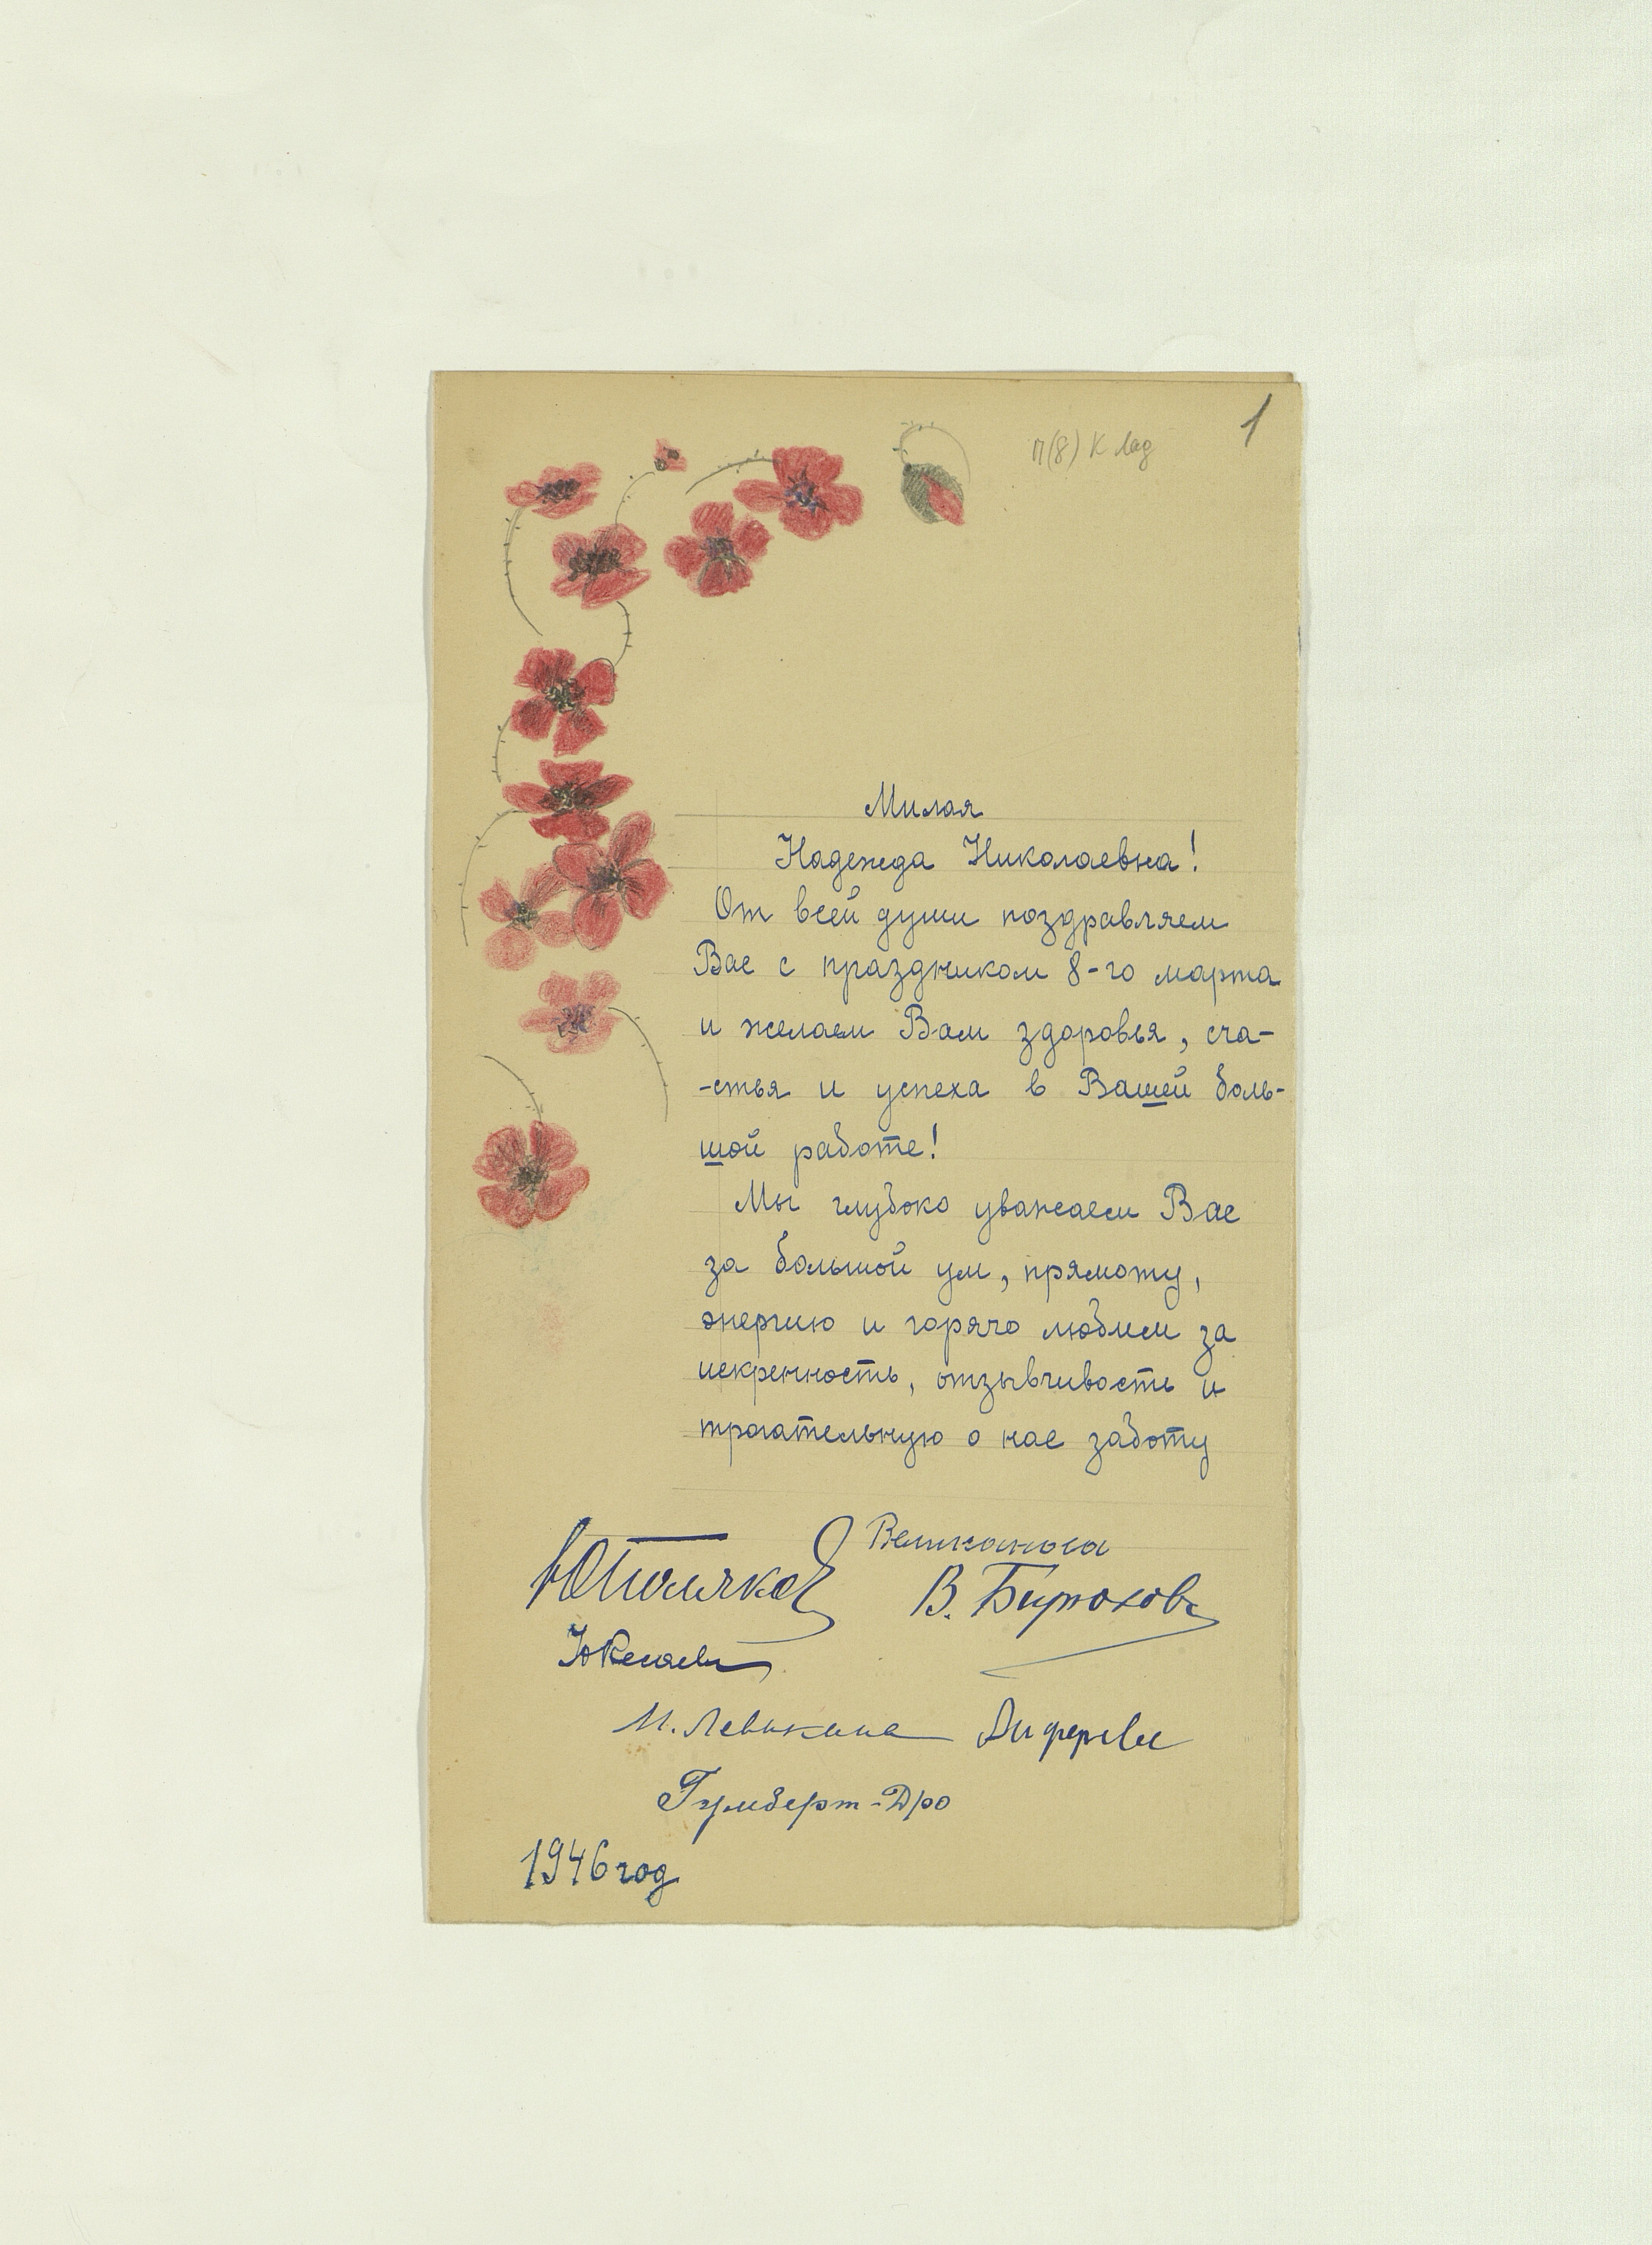 1
П(8) К Лад
Милая
Надежда Николаевна!
От всей души поздравляем
Вас с праздником 8-го марта
и желаем Вам здоровья, сча-
-стья и успеха в Вашей боль-
шой работе!
Мы глубоко уважаем Вас
за большой ум, прямоту,
энергию и горячо любим за
искренность, отзывчивость и
трогательную о нас заботу
Великанова
В. Бирюкова
М. Левыкина
Гумберт-Дро
1946 год